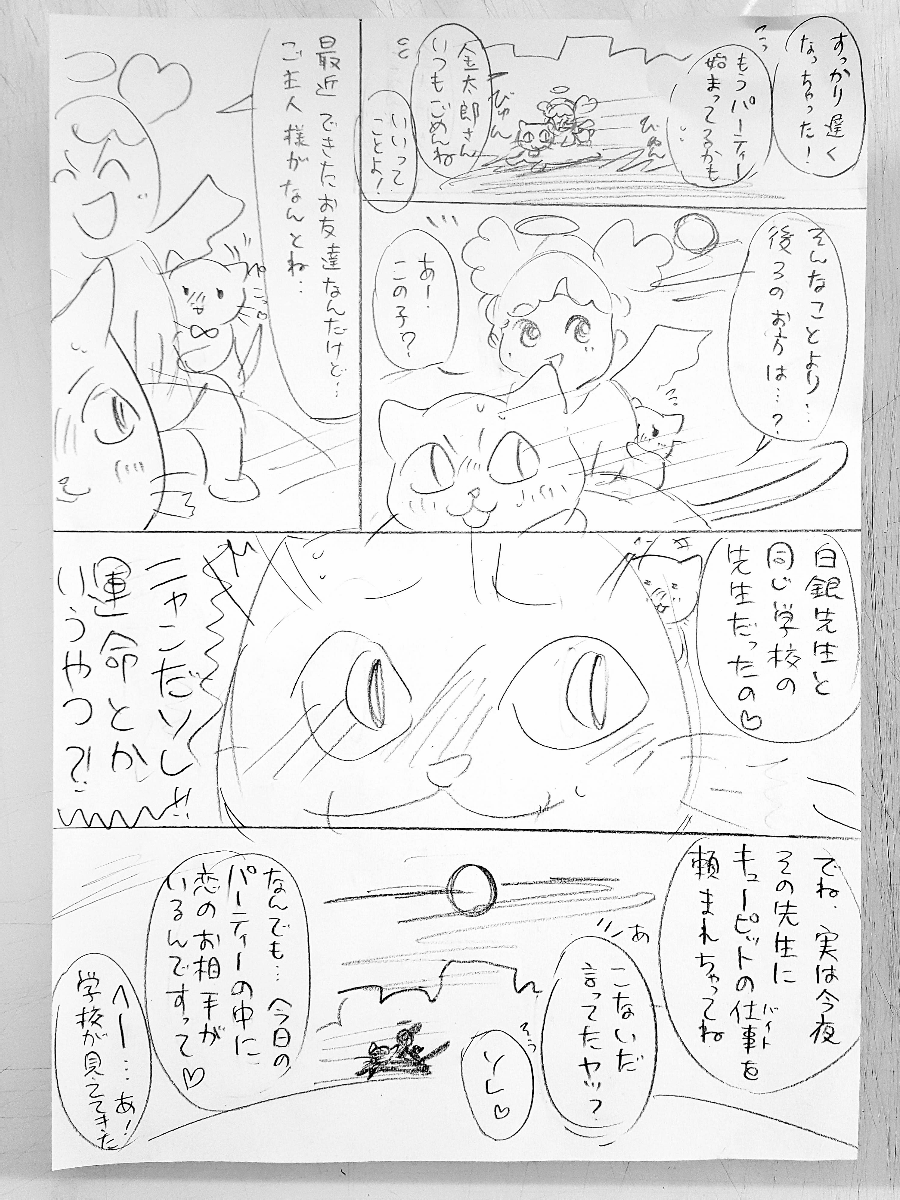 すっかり遅く
なっちゃった!
もうパーティー
始まってるかも
びゅん
びゅん
金太郎さん
いつもごめんね
いいって
ことよ!
そんなことより…
後ろのお方は…?
あ!
この子?
最近できたお友達なんだけど…
ご主人様がなんとね…
ペこっ
白銀先生と
同じ学校の
先生だったの♡
ニャンだソレ!!
運命とか
いうやつ?!
でね、実は今夜
その先生に
キューピットの仕事を
バイト
頼まれちゃってね
あ
こないだ
言ってたヤツ?
そっ
ソレ♡
なんでも…今日の
パーティーの中に
恋のお相手が
いるんですって♡
へー…あ!
学校が見えてきた